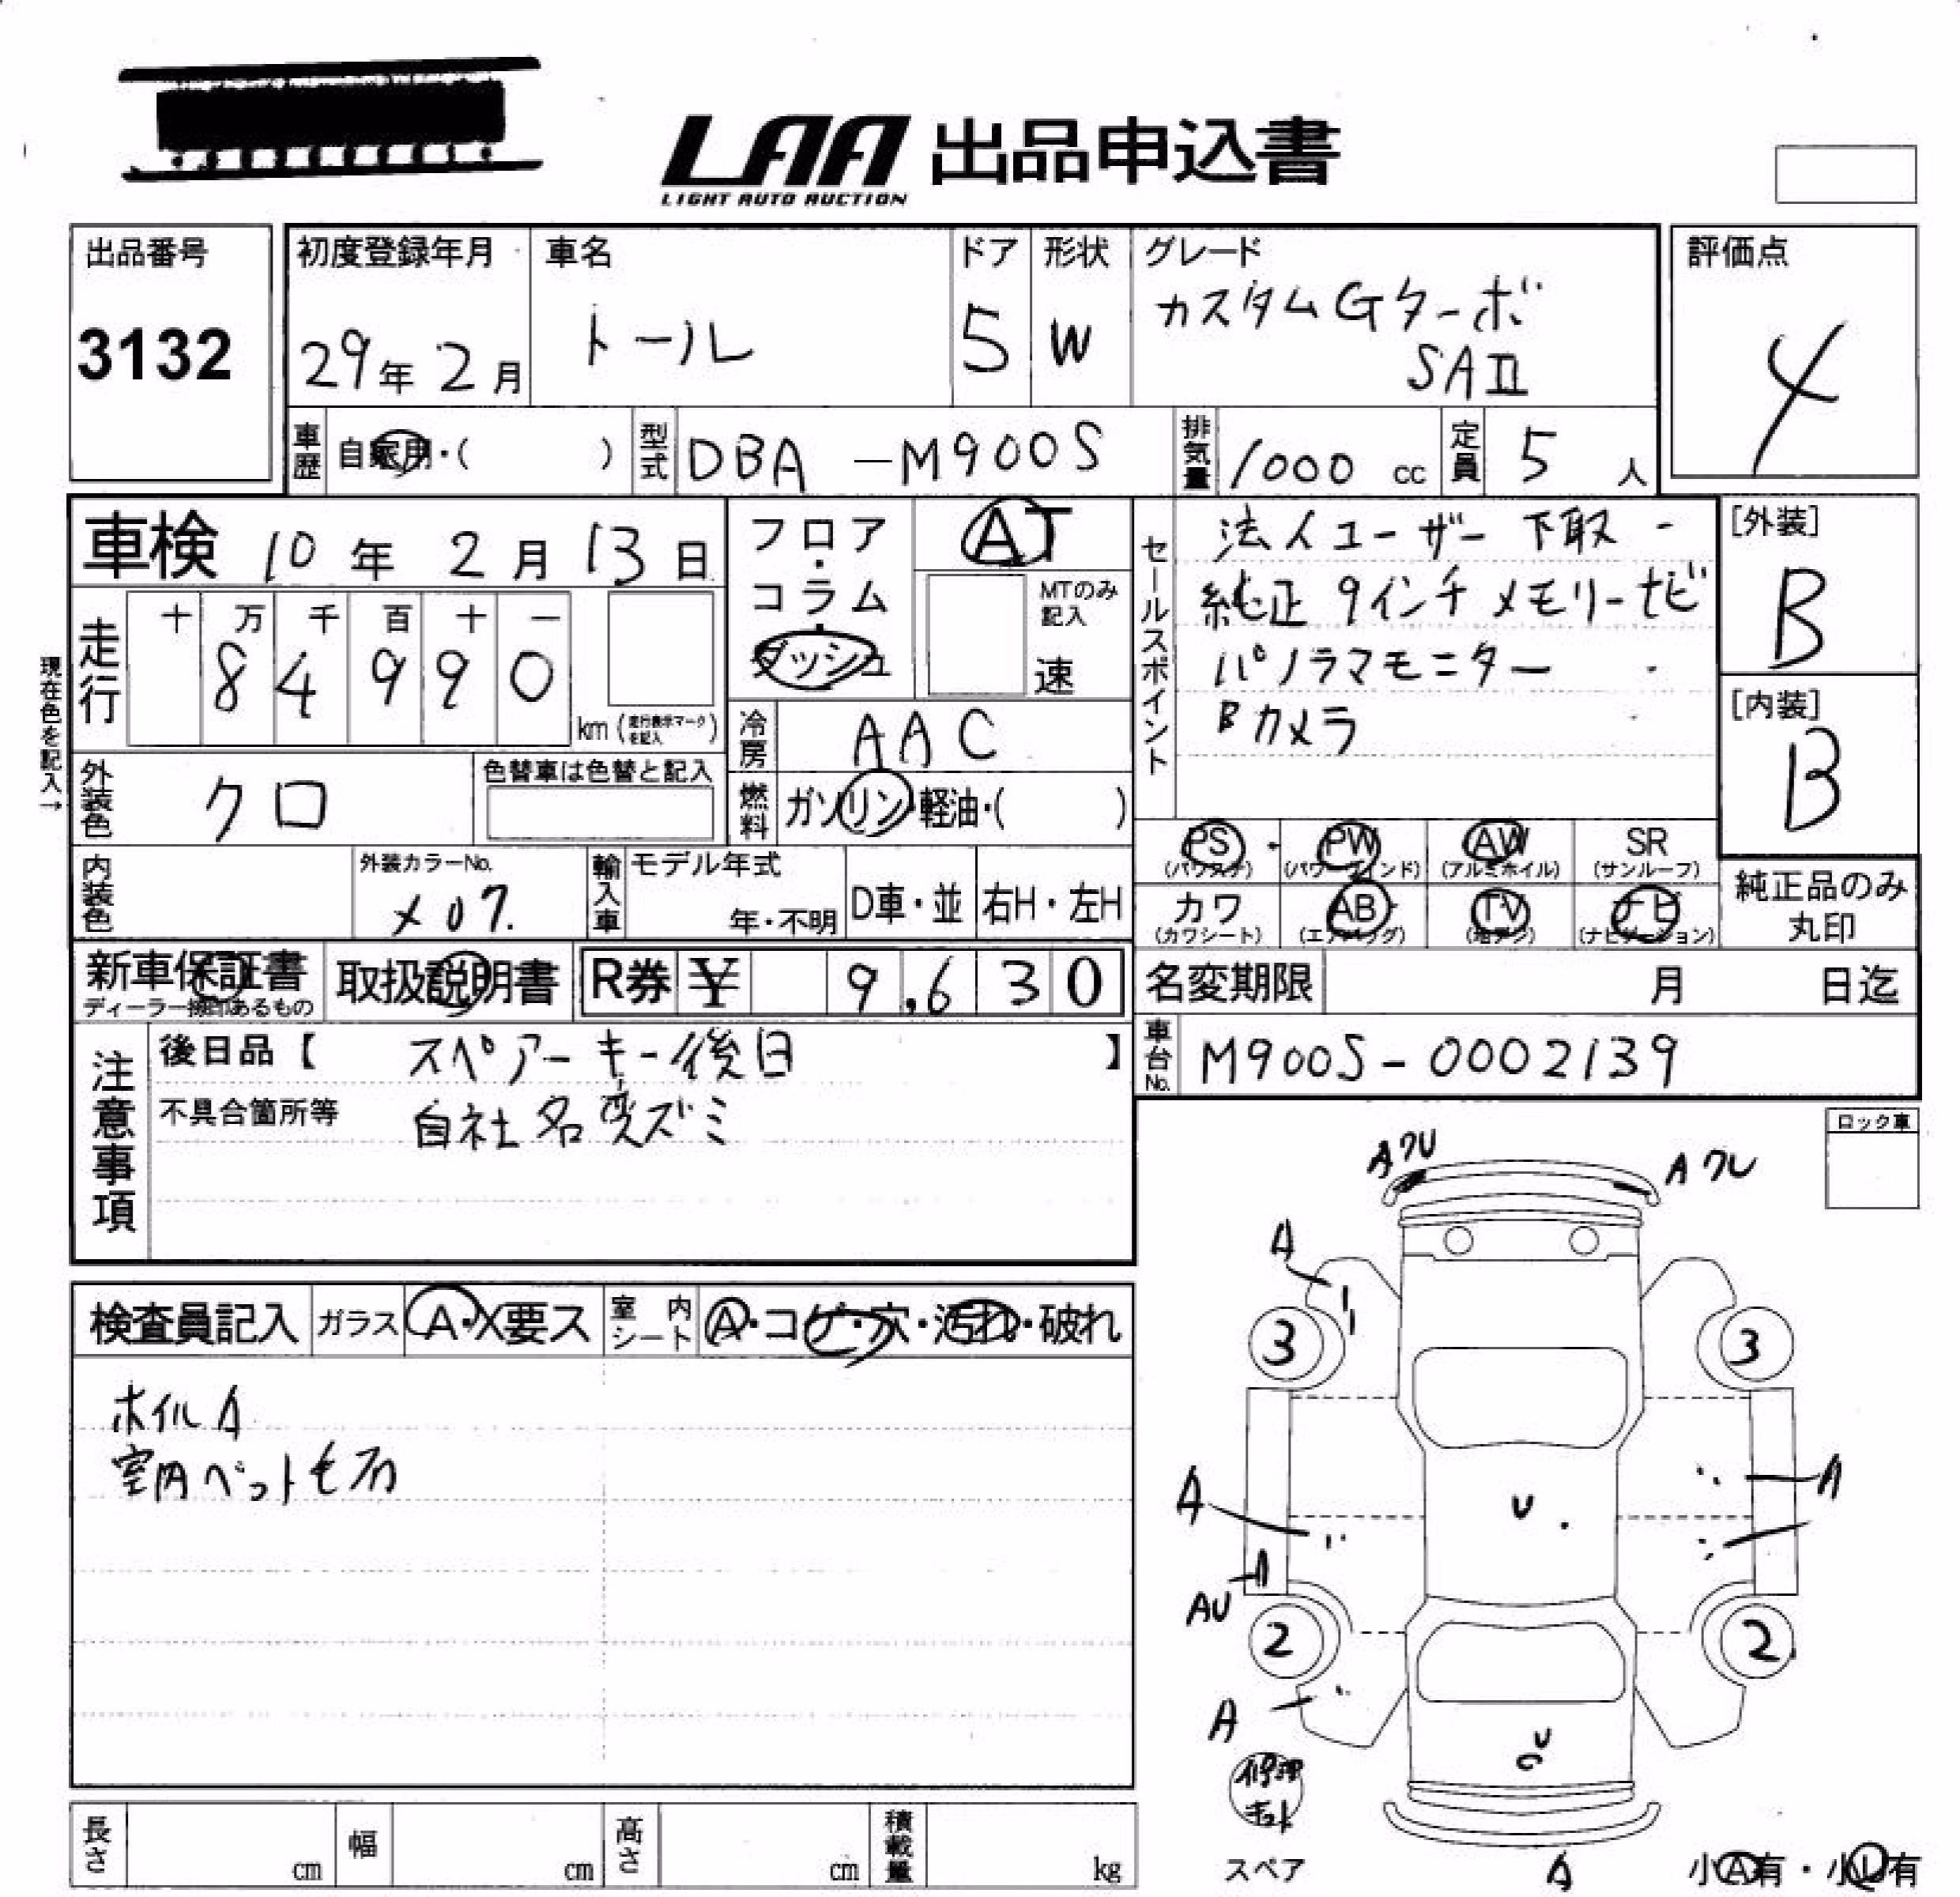 LAA 出品申込書
LIGHT AUTO AUCTION
出品番号
3132
初度登録年月
29年 2月
車名
トール
ドア
5
形状
W
グレード
カスタムGターボ
SAⅡ
評価点
4
車歴 自家用・( )
型式 DBA-M900S
排気量 1000 cc
定員 5 人
車検 10年 2月 13日
フロア・コラム・ダッシュ
AT
MTのみ記入
速
セールスポイント
法人ユーザー下取
純正9インチメモリーナビ
パノラマモニター
Bカメラ
[外装]
B
[内装]
B
現在色を記入→
走行
十 万 千 百 十 一
8 4 9 9 0
km (走行表示マークを記入)
冷房 AAC
外装色 クロ
色替車は色替と記入
燃料 ガソリン・軽油・( )
PS (パワステ)
PW (パワーウィンド)
AW (アルミホイル)
SR (サンルーフ)
カワ (カワシート)
AB (エアバッグ)
TV (地デジ)
ナビ (ナビゲーション)
純正品のみ丸印
内装色
外装カラーNo.
X07.
輸入車
モデル年式
年・不明
D車・並
右H・左H
新車保証書
ディーラー捺印あるもの
取扱説明書
R券 ¥ 9,630
名変期限 月 日迄
車台No. M900S-0002139
注意事項
後日品【 スペアーキー後日 】
不具合箇所等 自社名変ズミ
ロック車
検査員記入
ガラス A・X要ス
室内シート A・コゲ・穴・汚れ・破れ
ホイルA
室内ペット毛有
Aワレ
Aワレ
A
3
3
A
A
U
AU
2
2
A
U
修理キット
スペア
A
小A有・小U有
長さ cm
幅 cm
高さ cm
積載量 kg